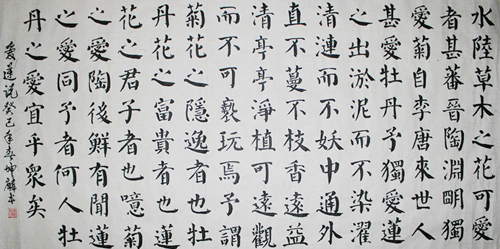 水陸草木之花可愛
者甚蕃晉陶淵明獨
愛菊自李唐來世人
甚愛牡丹予獨愛蓮
之出淤泥而不染濯
清漣而不妖中通外
直不蔓不枝香遠益
清亭亭淨植可遠觀
而不可褻玩焉予謂
菊花之隱逸者也牡
丹花之富貴者也蓮
花之君子者也噫菊
之愛陶後鮮有聞蓮
之愛同予者何人牡
丹之愛宜乎眾矣
爱蓮说癸巳年春坤麟书